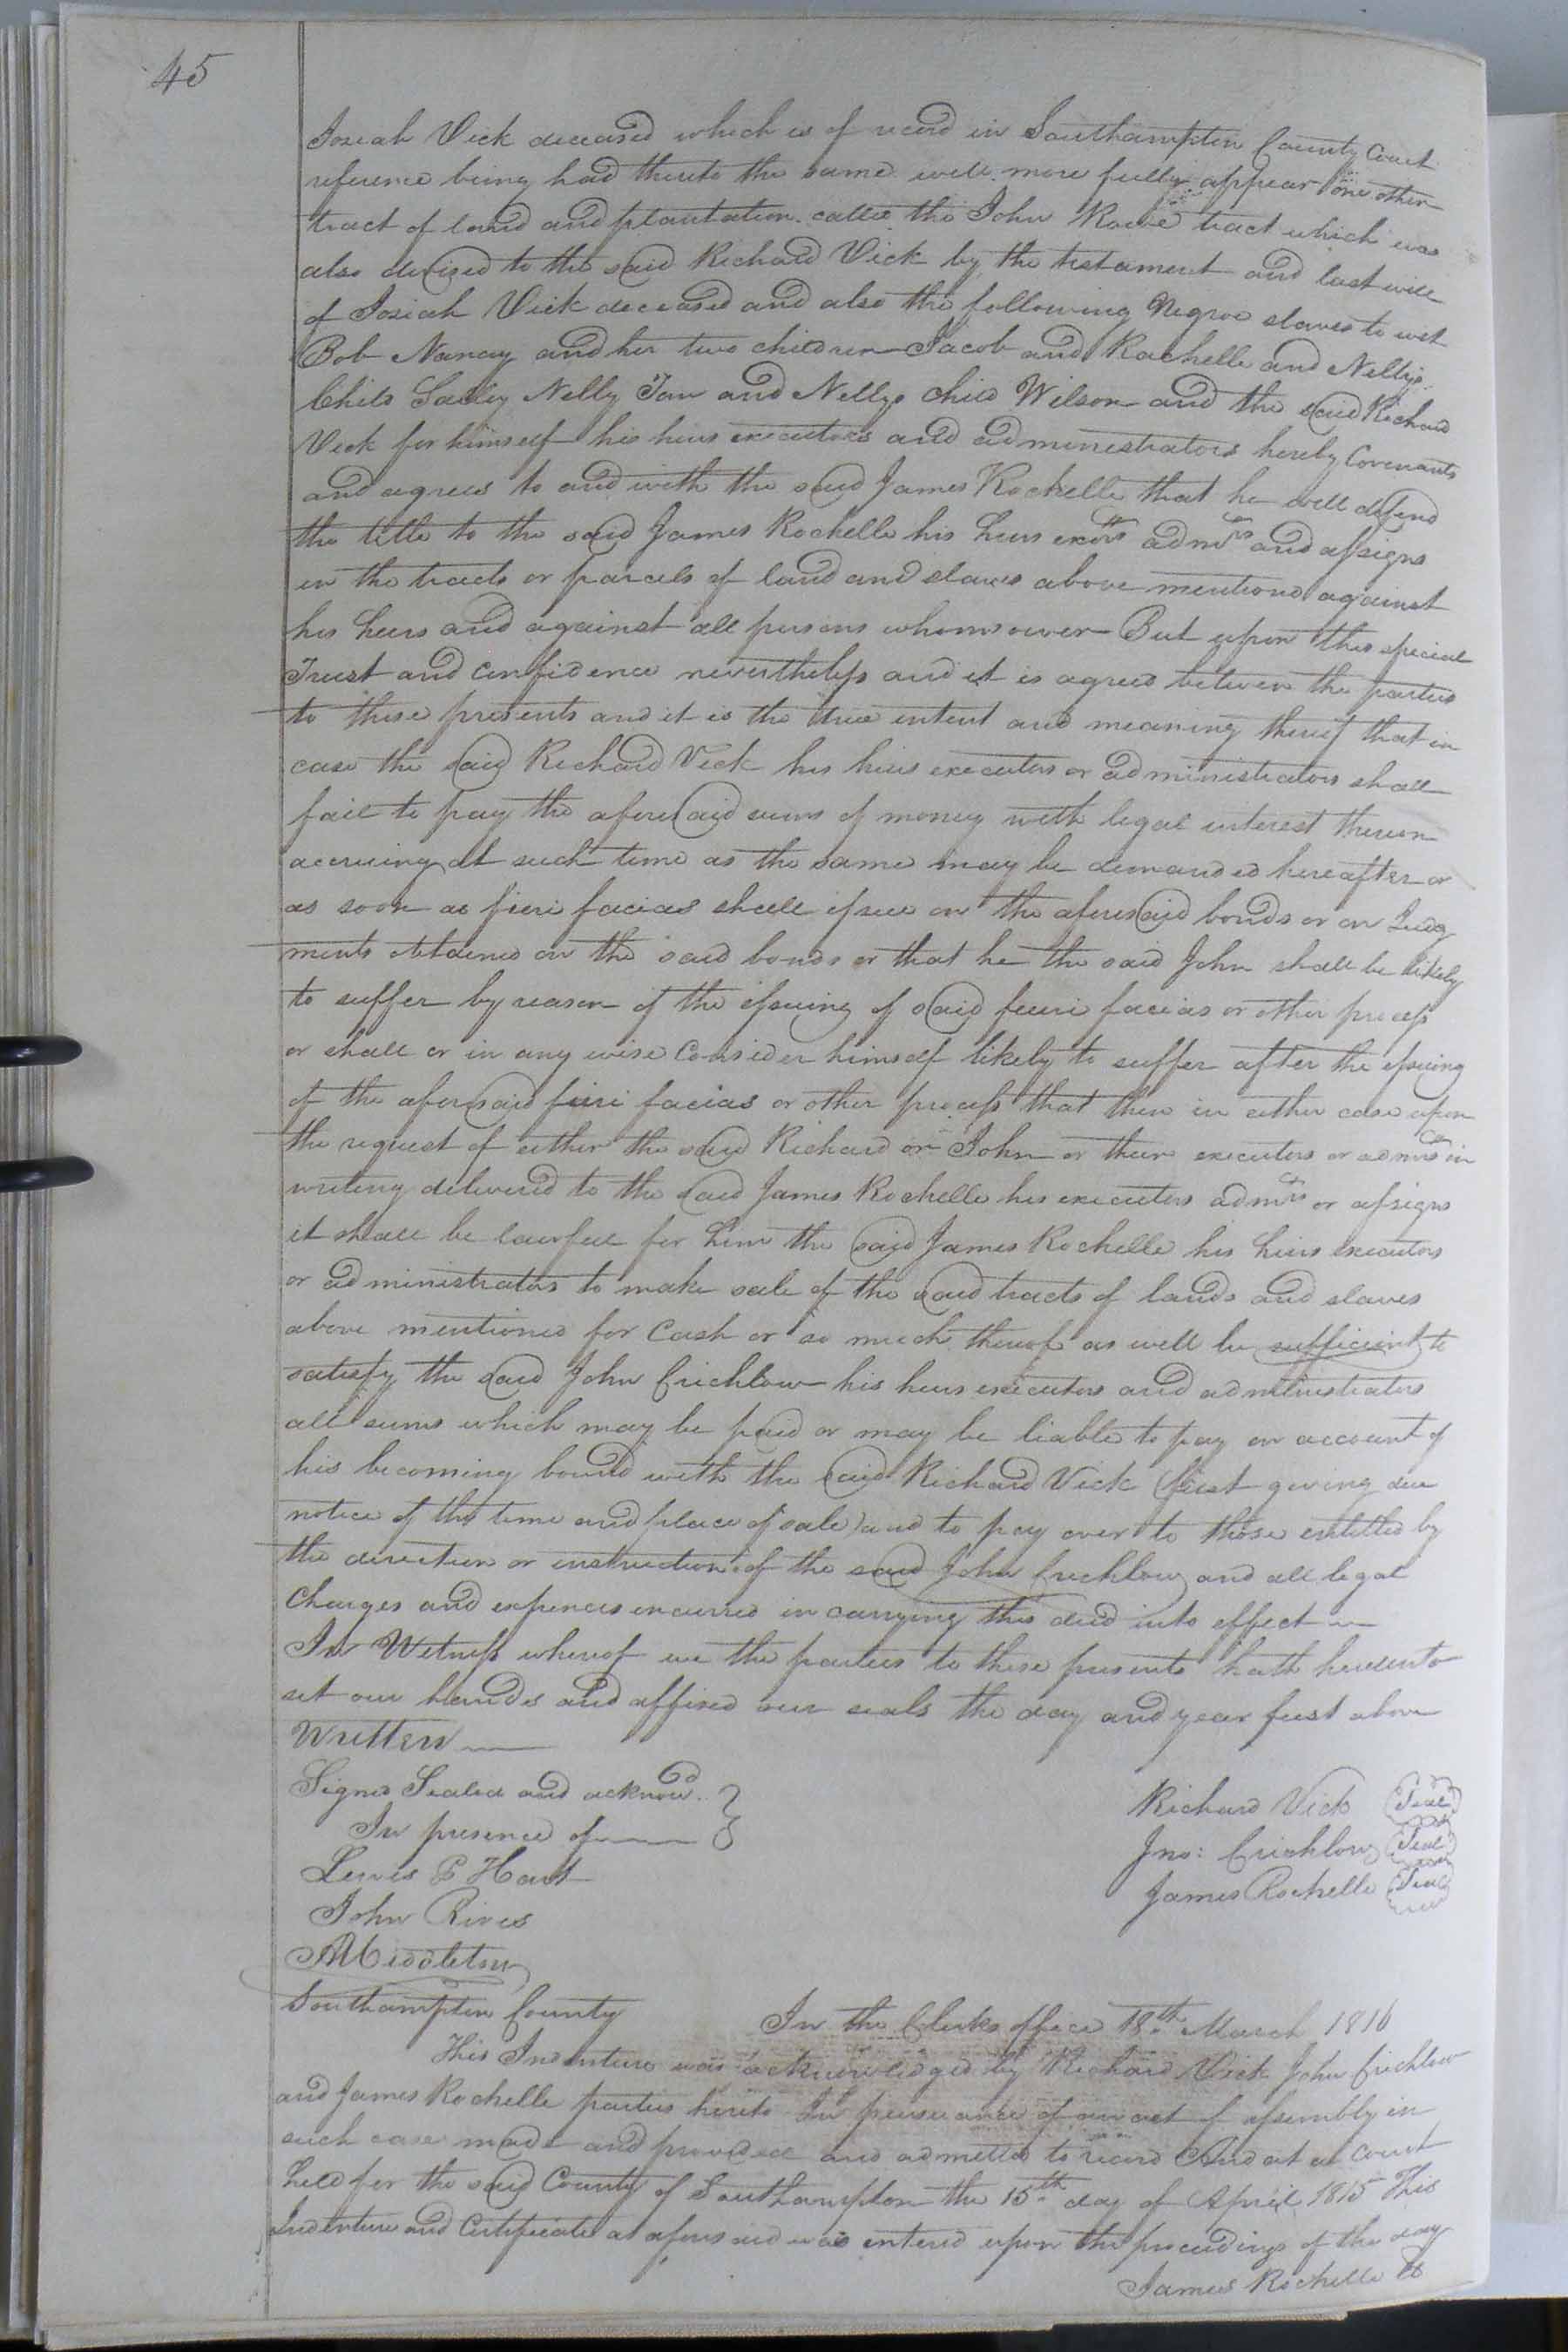 45
Josiah Vick deceased which is of record in Southampton County Court
reference being had thereto the same will more fully appear one other
tract of land and plantation called the John Rowe tract which was
also devised to the said Richard Vick by the testament and last will
of Josiah Vick deceased and also the following Negroe slaves to wit
Bob Nancy and her two children Jacob and Rachelle and Nellys
Child Salley Nelly Tom and Nellys child Wilson and the said Richard
Vick for himself his heirs executors and administrators hereby Covenants
and agrees to and with the said James Rochelle that he will defend
the title to the said James Rochelle his heirs exors admrs and assigns
in the tracts or parcels of land and slaves above mentioned against
his heirs and against all persons whomsoever But upon this special
Trust and confidence nevertheless and it is agreed between the parties
to these presents and it is the true intent and meaning thereof that in
case the said Richard Vick his heirs executors or administrators shall
fail to pay the aforesaid sums of money with legal interest thereon
accruing at such time as the same may be demanded hereafter or
as soon as fieri facias shall issue on the aforesaid bonds or on Judg
ments obtained on the said bonds or that he the said John shall be likely
to suffer by reason of the issuing of said fieri facias or other process
or shall or in any wise Consider himself likely to suffer after the issuing
of the aforesaid fieri facias or other process that then in either case upon
the request of either the said Richard or John or their executors or admrs in
writing delivered to the said James Rochelle his executors admrs or assigns
it shall be lawfull for him the said James Rochelle his heirs executors
or administrators to make sale of the said tracts of lands and slaves
above mentioned for Cash or so much thereof as will be sufficient to
satisfy the said John Crichlow his heirs executors and administrators
all sums which may be paid or may be liable to pay on account of
his becoming bound with the said Richard Vick (first giving due
notice of the time and place of sale) and to pay over to those entitled by
the direction or instruction of the said John Crichlow and all legal
Charges and expences incurred in carrying this deed into effect
In Witness whereof we the parties to these presents hath hereunto
set our hands and affixed our seals the day and year first above
Written
Signed Sealed and acknowd
In presence of
Lewis P Hart
John Rives
Middleton
Richard Vick Seal
Jno: Crichlow Seal
James Rochelle Seal
Southampton County In the Clerks office 18th March 1816
This Indenture was acknowledged by Richard Vick John Crichlow
and James Rochelle parties hereto In pursuance of an act of assembly in
such case made and provided and admitted to record And at a Court
held for the said County of Southampton the 15th day of April 1815 This
Indenture and Certificate as aforesaid was entered upon the proceedings of the day
James Rochelle